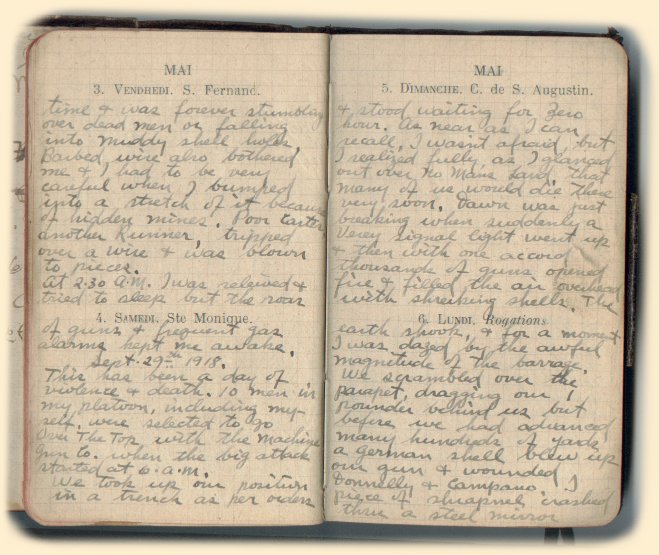 MAI
3. VENDREDI. S. Fernand.
time & was forever stumbling
over dead men or falling
into muddy shell holes.
Barbed wire also bothered
me & I had to be very
careful when I bumped
into a stretch of it because
of hidden mines. Poor
another Runner, tripped
over a wire & was blown
to pieces.
At 2.30 A.M. I was releived &
tried to sleep but the roar
4. SAMEDI. Ste Monique.
of guns & frequent gas
alarms kept me awake.
Sept. 29th 1918.
This has been a day of
violence & death. 10 men in
my platoon, including my-
self, were selected to go
Over The Top with the Machine
Gun Co. when the big attack
started at 6.a.m.
We took up our position
in a trench as per orders
MAI
5. DIMANCHE. C. de S. Augustin.
& stood waiting for Zero
hour. As near as I can
recall, I wasn't afraid, but
I realized fully, as I glanced
out over No Mans Land, that
many of us would die there
very soon. Dawn was just
breaking when suddenly a
Verey signal light went up
& then with one accord
thousands of guns opened
fire & filled the air overhead
with shreiking shells. The
6. LUNDI. Rogations
earth shook, & for a moment
I was dazed by the awful
magnitude of the barrage.
We scrambled over the
parapet, dragging our 1
pounder behind us but
before we had advanced
many hundreds of yards,
a german shell blew up
our gun & wounded
Donnelly & Campano. A
piece of shrapnel crashed
thru a steel mirror